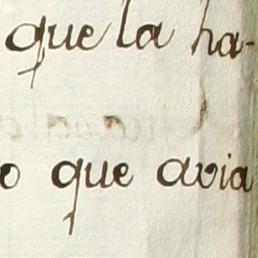 que la ha-
o que avia